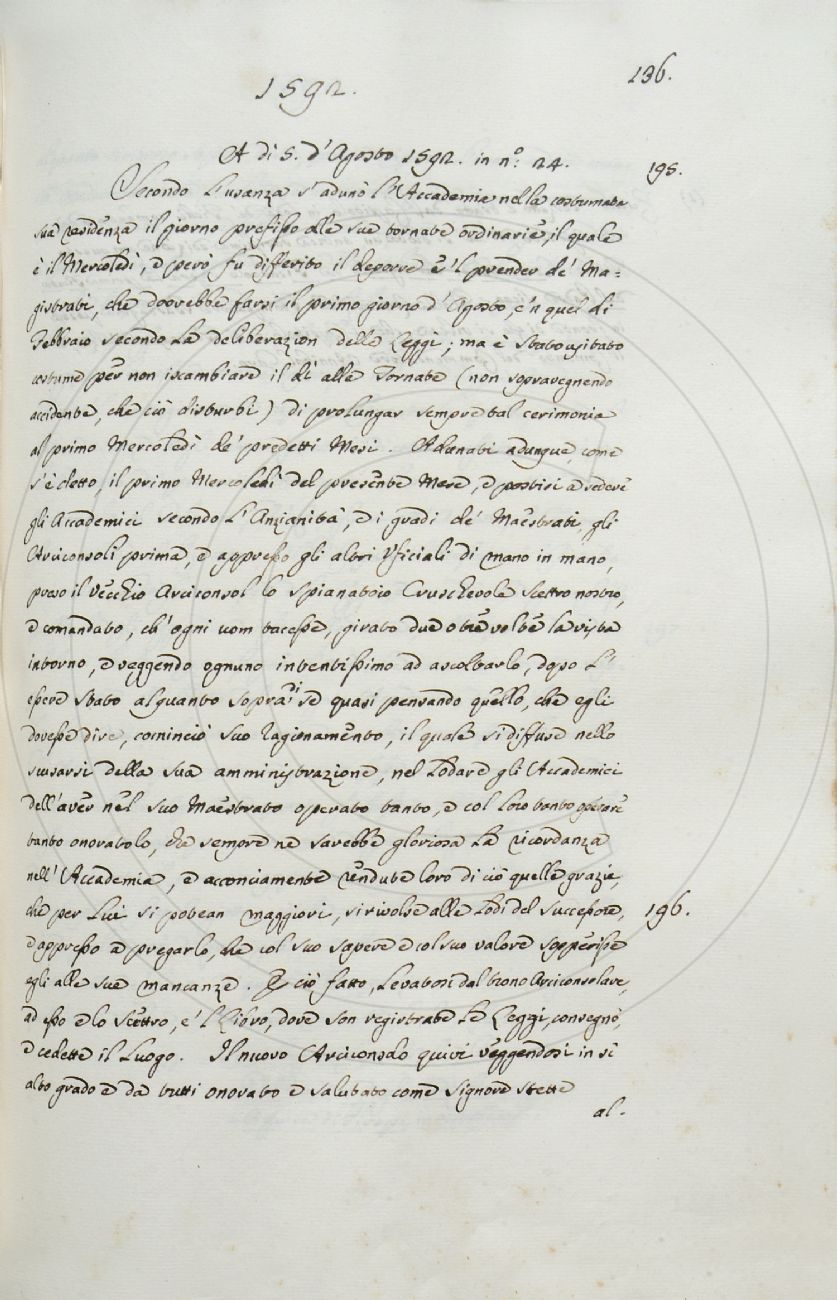 136.
1592.
A dì 5. d'Agosto 1592. in n.º 24.
195.
Secondo l'usanza s'adunò l'Accademia nella costumata
sua residenza il giorno prefisso alle sue tornate ordinarie, il quale
è il Mercoledì, e però fu differito il deporre e 'l prender de' Ma=
gistrati, che dovrebbe farsi il primo giorno d'Agosto, e'n quel di
Febbraio secondo la deliberazion delle Leggi; ma è stato usitato
costume per non iscambiare il dì alle Tornate (non sopravegnendo
accidente, che ciò disturbi) di prolungar sempre tal cerimonia
al primo Mercoledì de' predetti Mesi. Adunati adunque, come
s'è detto, il primo Mercoledì del presente Mese, e postisi a sedere
gli Accademici secondo l'Anzianità, e i gradi de' Maestrati, gli
Arciconsoli prima, e appresso gli altri Uficiali di mano in mano,
preso il vecchio Arciconsol lo spianatoio Cruschevole scettro nostro,
e comandato, ch'ogni uom tacesse, girato due o tre volte la vista
intorno, e veggendo ognuno intentissimo ad ascoltarlo, dopo l'
essere stato alquanto sopra di se quasi pensando quello, che egli
dovesse dire, cominciò suo ragionamento, il quale si diffuse nello
scusarsi della sua amministrazione, nel lodare gli Accademici
dell'aver nel suo Maestrato operato tanto, e col loro tanto operare
tanto onoratolo, che sempre ne sarebbe gloriosa la ricordanza
nell'Accademia, e acconciamente rendute loro di ciò quelle grazie,
che per lui si potean maggiori, si rivolse alle lodi del successore,
196.
e appresso a pregarlo, che col suo sapere e col suo valore sopperisse
egli alle sue mancanze. E ciò fatto, levatosi dal trono Arciconsolare,
ad esso e lo scettro, e 'l Libro, dove son registrate le Leggi, consegnò,
e cedette il luogo. Il nuovo Arciconsolo quivi veggendosi in sì
alto grado e da tutti onorato e salutato come signore stette
al.